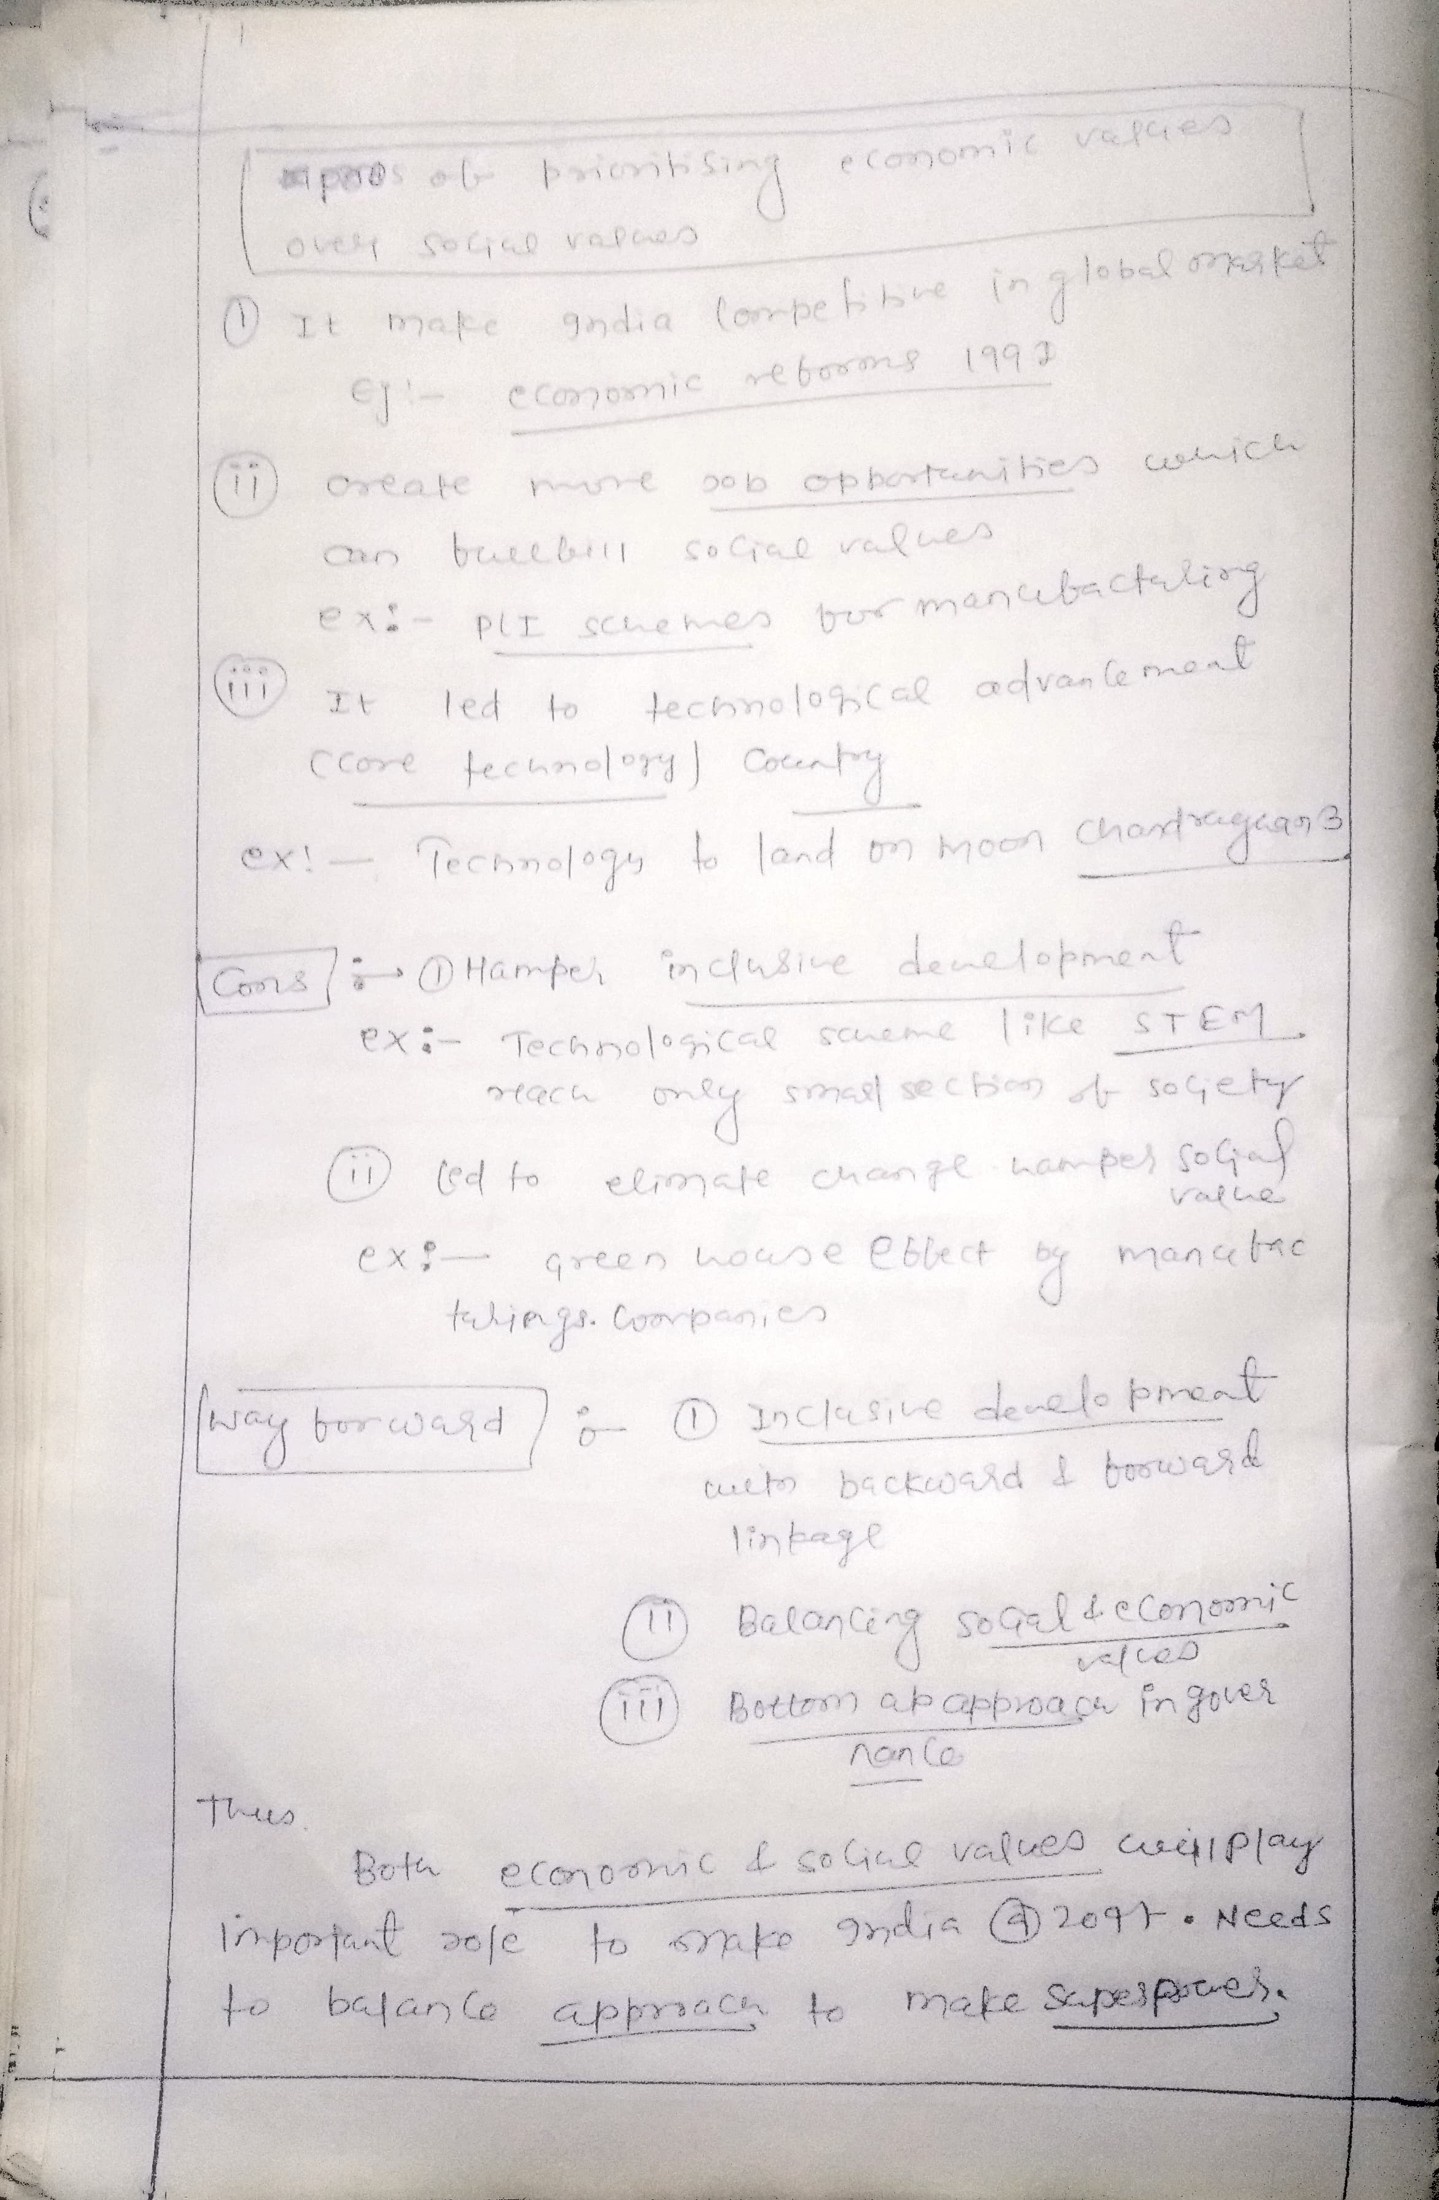 pros of prioritising economic values
over social values
① It make India Competitive in global market
Eg:- economic reforms 1991
(ii) create more Job opportunities which
can fullfill social values
ex:- PLI schemes for manufacturing
(iii) It led to technological advancement
(core technology) Country
ex:- Technology to land on moon Chandrayaan 3
Cons :- ① Hamper inclusive development
ex:- Technological scheme like STEM
reach only small section of society
(ii) led to climate change hamper social
value
ex:- green house effect by manufac
turings. Companies
way forward :- ① Inclusive development
with backward & forward
linkage
(ii) Balancing social & economic
values
(iii) Bottom up approach in gover
nance
Thus
Both economic & social values will play
important role to make India @ 2047. Needs
to balance approach to make superpower.